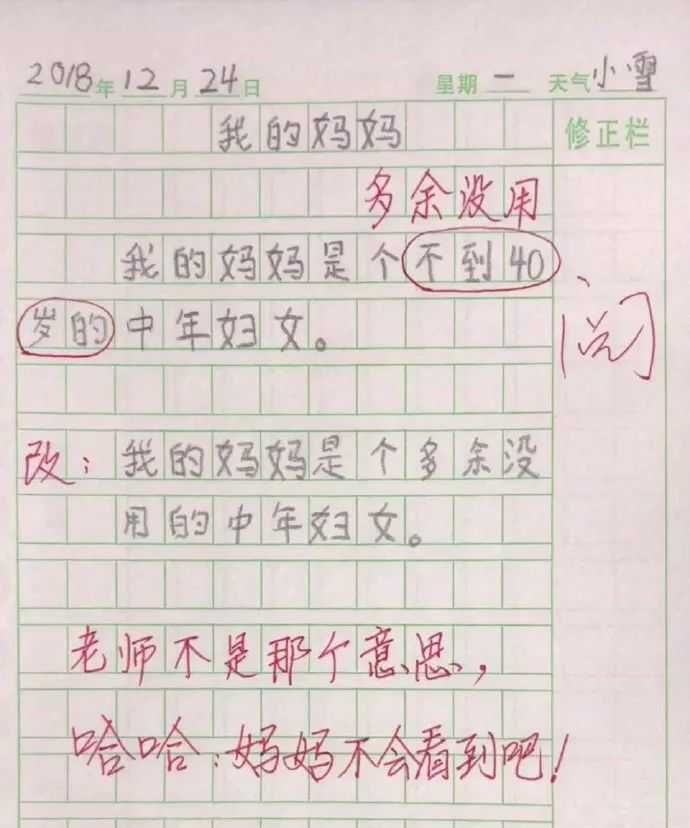 2018年12月24日 星期一 天气小雪
我的妈妈 修正栏
多余没用
我的妈妈是个不到40
岁的中年妇女。
阅
改：我的妈妈是个多余没
用的中年妇女。
老师不是那个意思，
哈哈，妈妈不会看到吧！